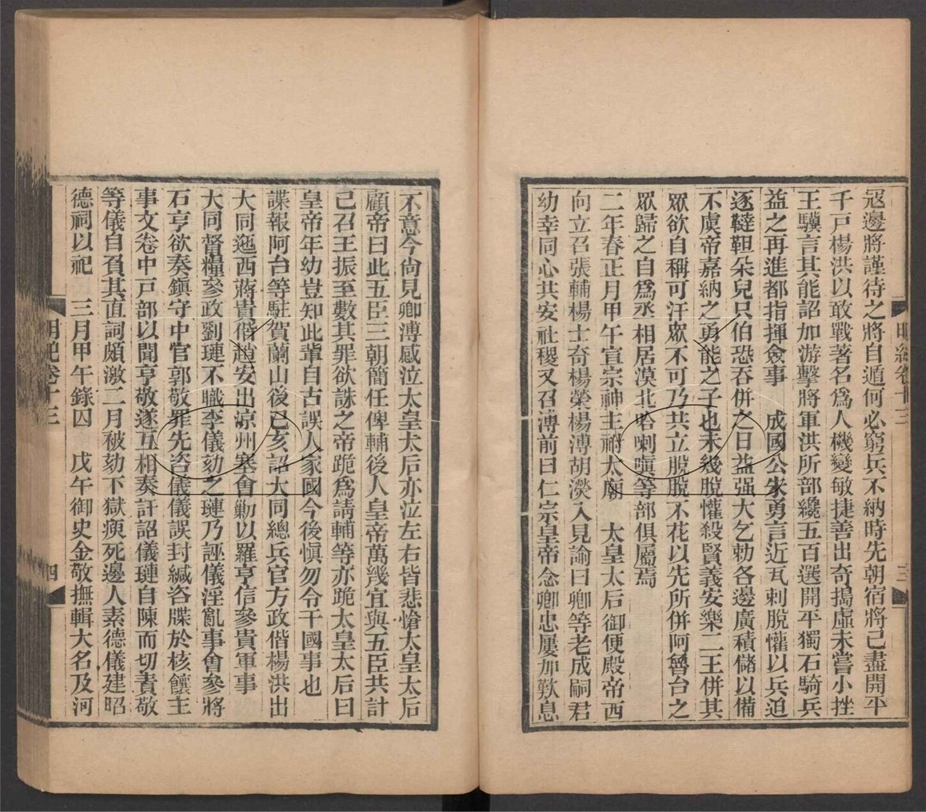 寇邊將謹待之將自遁何必窮兵不納時先朝宿將已盡開平
千戸楊洪以敢戰著名爲人機變敏捷善出奇搗虛未嘗小挫
王驥言其能詔加游擊將軍洪所部纔五百選開平獨石騎兵
益之再進都指揮僉事　成國公朱勇言近瓦剌脫懽以兵迫
逐韃靼朵兒只伯恐吞併之日益强大乞勅各邊廣積儲以備
不虞帝嘉納之勇能之子也未幾脫懽殺賢義安樂二王併其
眾欲自稱可汗眾不可乃共立脫脫不花以先所併阿魯台之
眾歸之自爲丞相居漠北哈喇嗔等部俱屬焉
二年春正月甲午宣宗神主祔太廟　太皇太后御便殿帝西
向立召張輔楊士奇楊榮楊溥胡濙入見諭曰卿等老成嗣君
幼幸同心共安社稷又召溥前曰仁宗皇帝念卿忠屢加歎息
不意今尙見卿溥感泣太皇太后亦泣左右皆悲愴太皇太后
顧帝曰此五臣三朝簡任俾輔後人皇帝萬幾宜與五臣共計
已召王振至數其罪欲誅之帝跪爲請輔等亦跪太皇太后曰
皇帝年幼豈知此輩自古誤人家國今後愼勿令干國事也
諜報阿台等駐賀蘭山後己亥詔大同總兵官方政偕楊洪出
大同迤西蔣貴偕趙安出涼州塞會勦以羅亨信參貴軍事
大同督糧參政劉璉不職李儀劾之璉乃誣儀淫亂事會參將
石亨欲奏鎮守中官郭敬罪先咨儀儀誤封緘咨牒於核饟主
事文卷中戸部以聞亨敬遂互相奏訐詔儀璉自陳而切責敬
等儀自負其直詞頗激二月被劾下獄瘐死邊人素德儀建昭
德祠以祀　三月甲午錄囚　戊午御史金敬撫輯大名及河
明紀卷十三
三
明紀卷十三
四